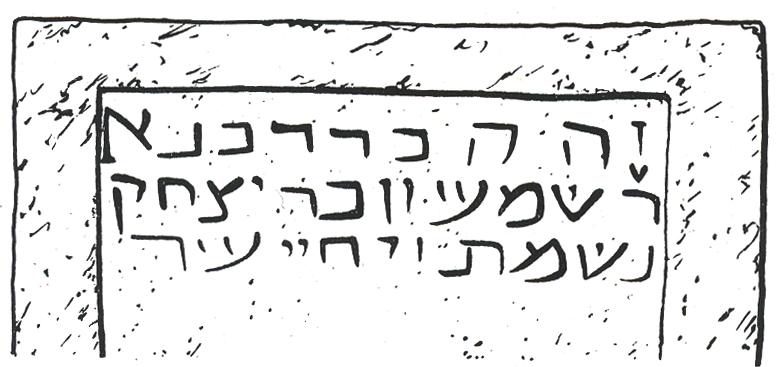 זה קבר רבנא
ר שמעון בר יצחק
נשמתו יחיי עיר